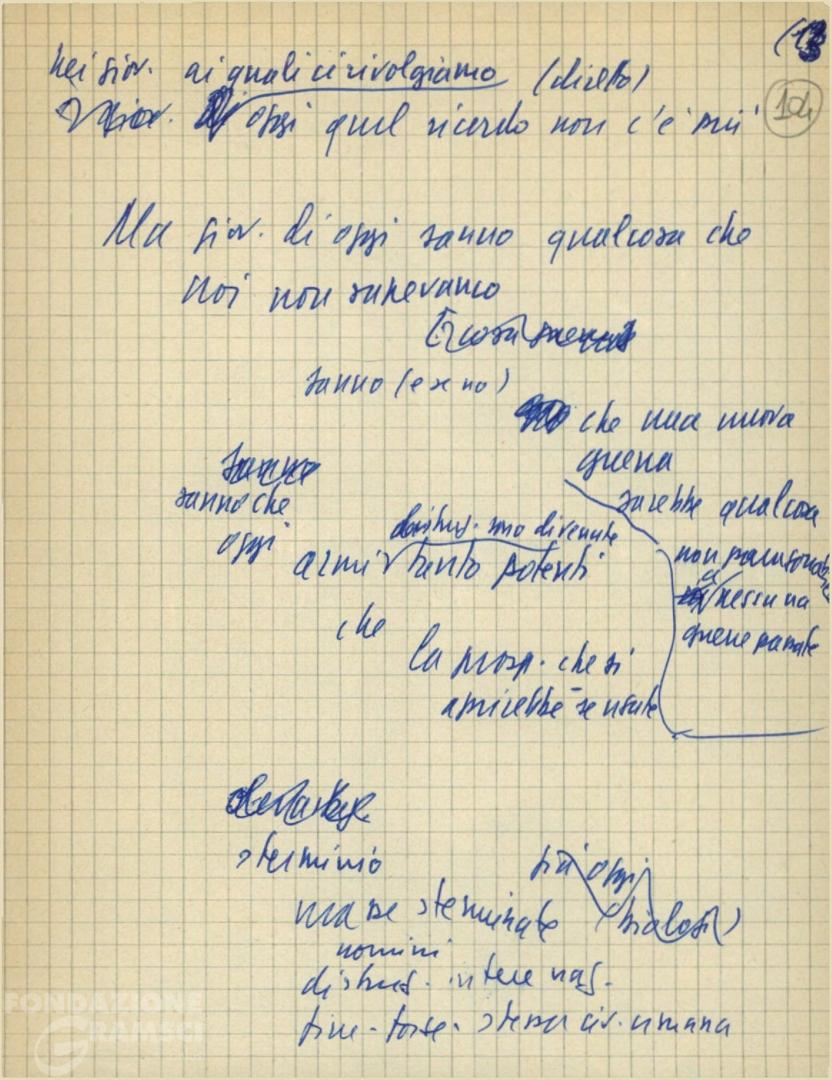 (13
14
Nei giov. ai quali ci rivolgiamo (diretto)
giov. di oggi quel ricordo non c'è più
Ma giov. di oggi sanno qualcosa che
noi non sapevamo
E cosa
sanno (e se no)
che una nuova
guerra
sarebbe qualcosa
non paragonabile
a nessuna
guerre passate
sanno
sanno che
oggi
distrut. sono divenute
armi tanto potenti
che
la prosp. che si
aprirebbe - se usate
sterminio
già oggi
masse sterminate
uomini
distrug. intere naz.
fine - forse - stessa civ. umana
FONDAZIONE
GRAMSCI